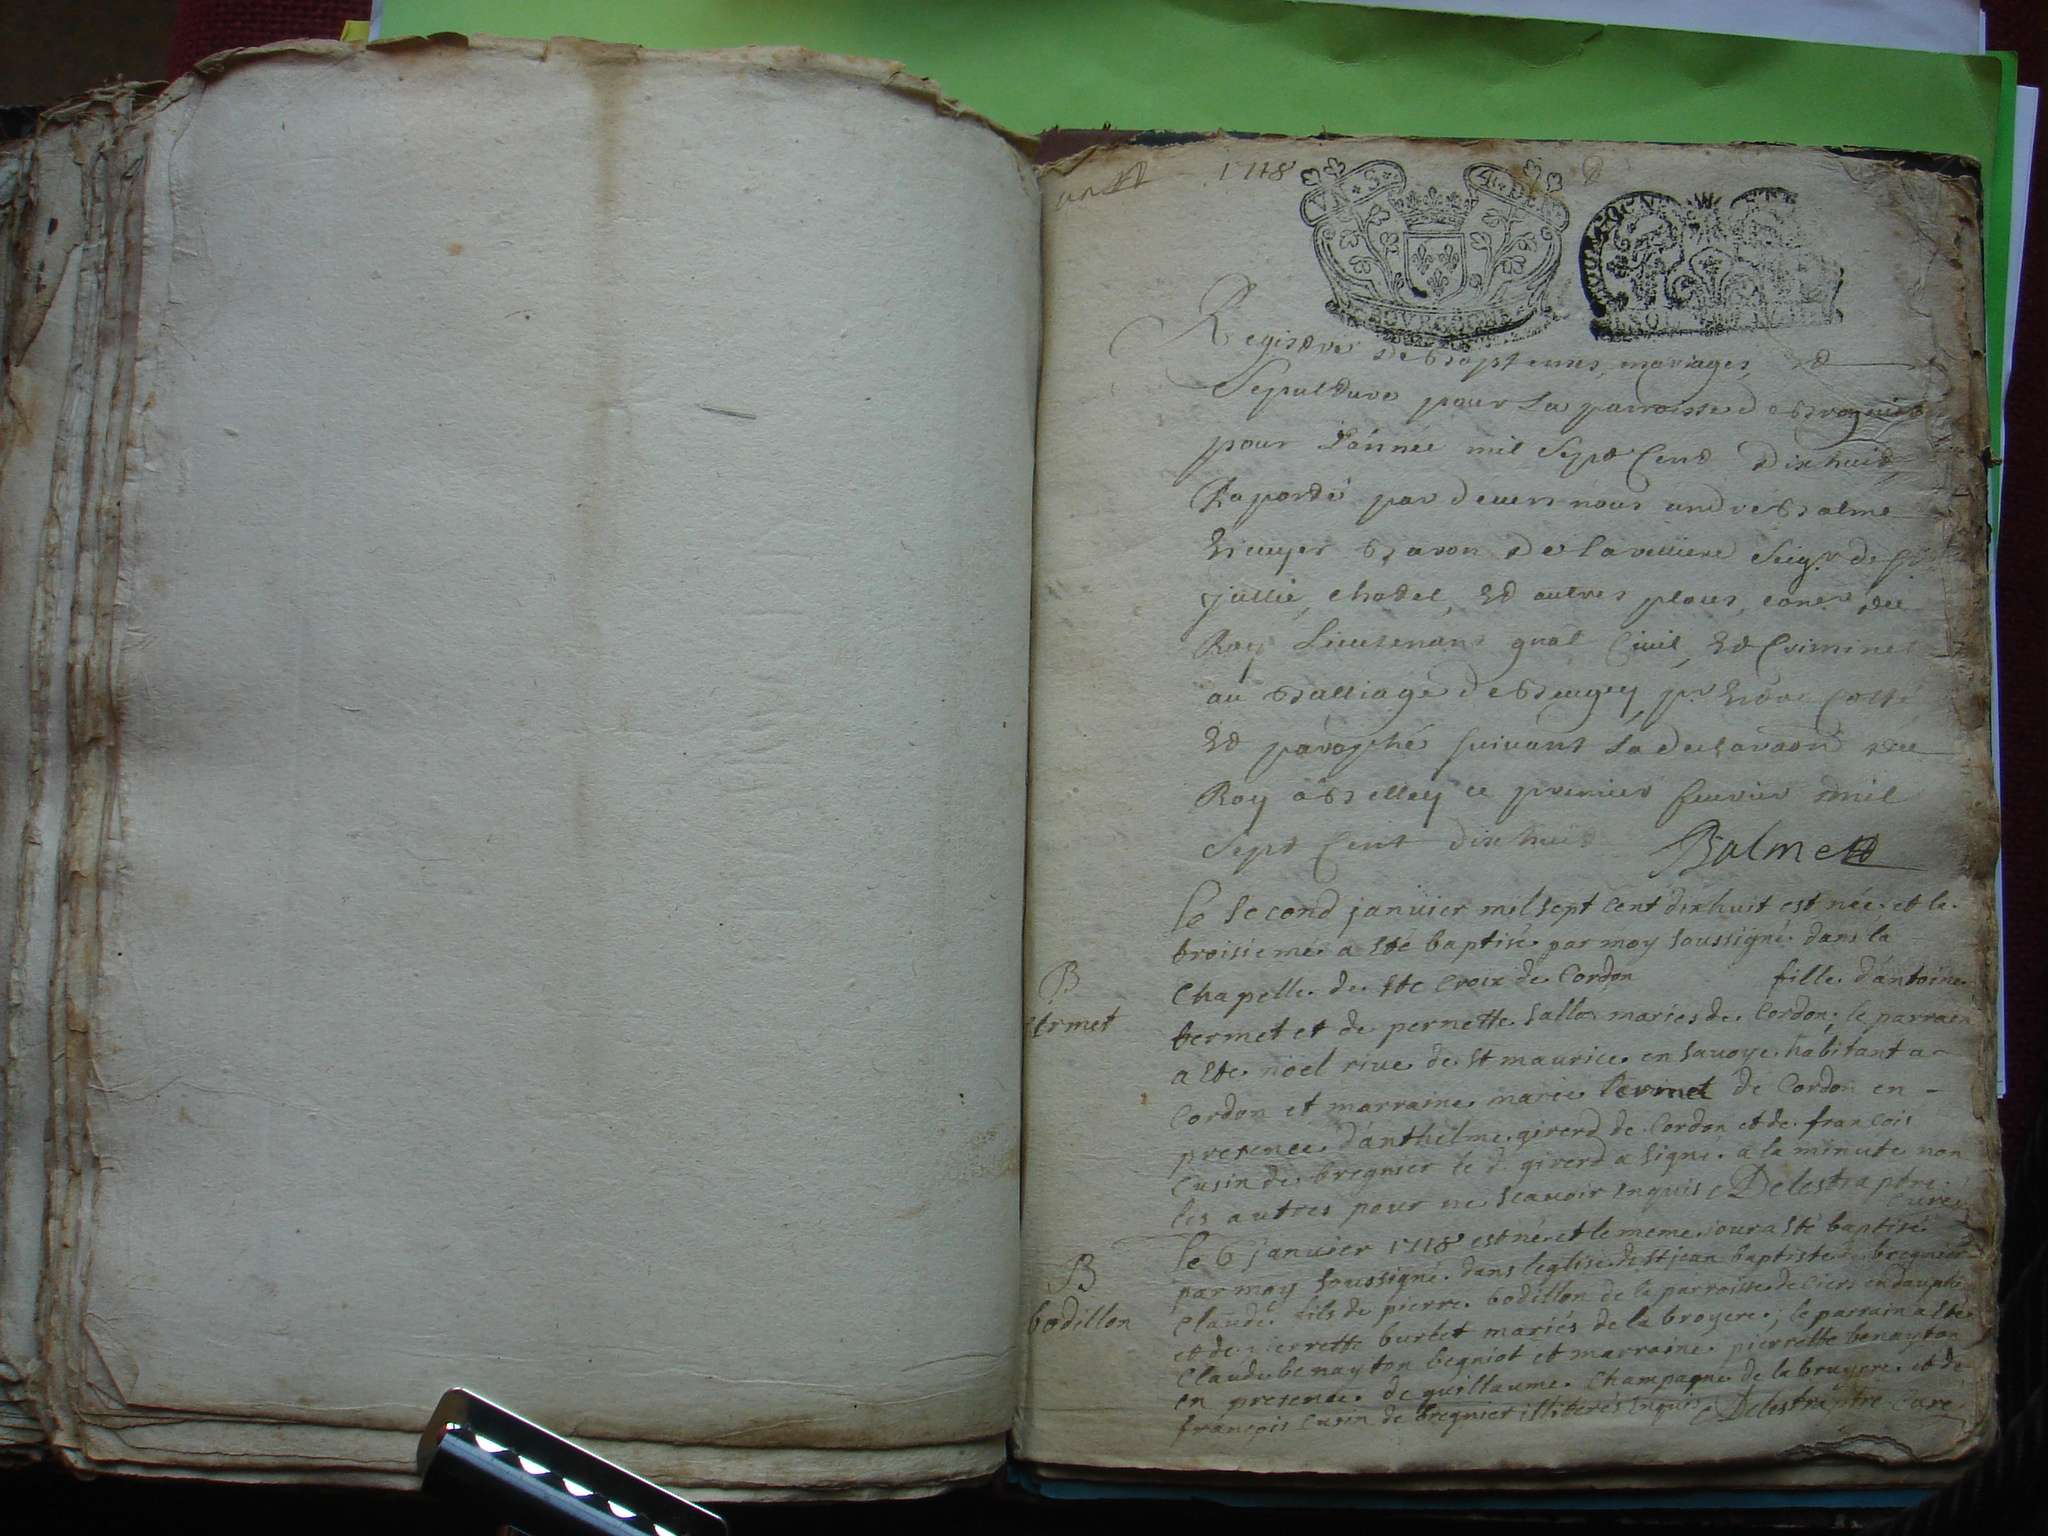 1718
VN S 4 DEN
BOVRGOGNE
Registre de Baptemes, mariages, et
Sepulture pour La parroisse de Bregnier
pour L'année mil Sept Cent Dix huit
Raporté par devers nous andre Balme
Ecuyer Baron de la velliere Seigr de
jullie, chatel, et autres places, coner du
Roy Lieutenant gnal Civil, et Criminel
au Balliage de Beugey, pr Estre Cotté
et paraphé suivant La declaraon du
Roy a Belley ce premier feuvrier mil
Sept Cent dix huit Balme
le second januier mil sept cent dix huit est née et le
troisieme a sté baptisé par moy soussigné dans la
B
chapelle de ste croix de Cordon fille d'antoine
termet
termet et de pernette sallo mariés de Cordon; le parrain
a sté noel rive de st maurice en savoye habitant a
Cordon et marraine marie termet de Cordon en
presence d'anthelme girerd de Cordon et de francois
Cusin de bregnier le d. girerd a signé a la minute non
les autres pour ne scauoir enquis Delestra ptre
Curé
le 6 januier 1718 est né et le meme jour a sté baptisé
B
par moy soussigné dans l'eglise de st jean baptiste de bregnier
bodillon
Claude fils de pierre bodillon de la parroisse de Ciers en dauphi
et de pierrette burlet mariés de la broyere; le parrain a sté
Claude benayton begniot et marraine pierrette benayton
en presence de guillaume Champagne de la bruyere et de
françois Cusin de bregnier illiterés enquis Delestra ptre Curé